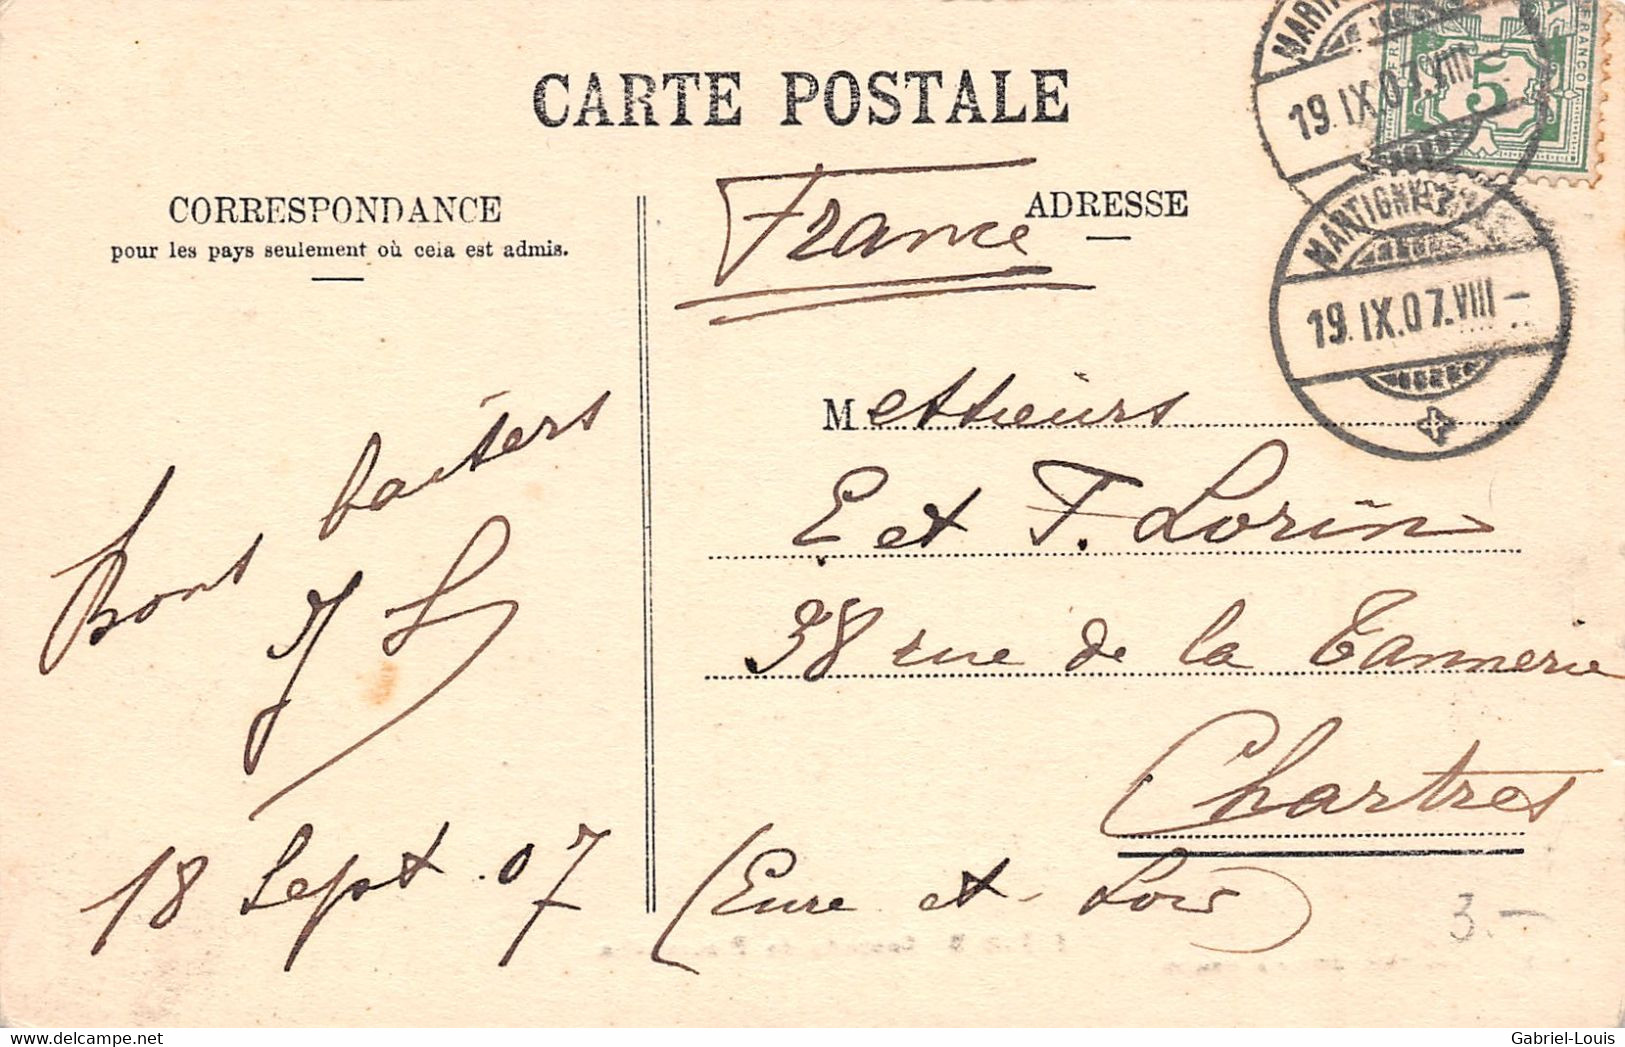 CARTE POSTALE
CORRESPONDANCE
pour les pays seulement où cela est admis.
ADRESSE
France
MARTIGNY
19.IX.07.VIII-
5
FRANCO
MARTIGNY
19.IX.07.VIII-
Messieurs
E et F. Lorin
38 rue de la Tannerie
Chartres
(Eure et Loir)
Bons baisers
18 Sept. 07
3.-
Gabriel-Louis